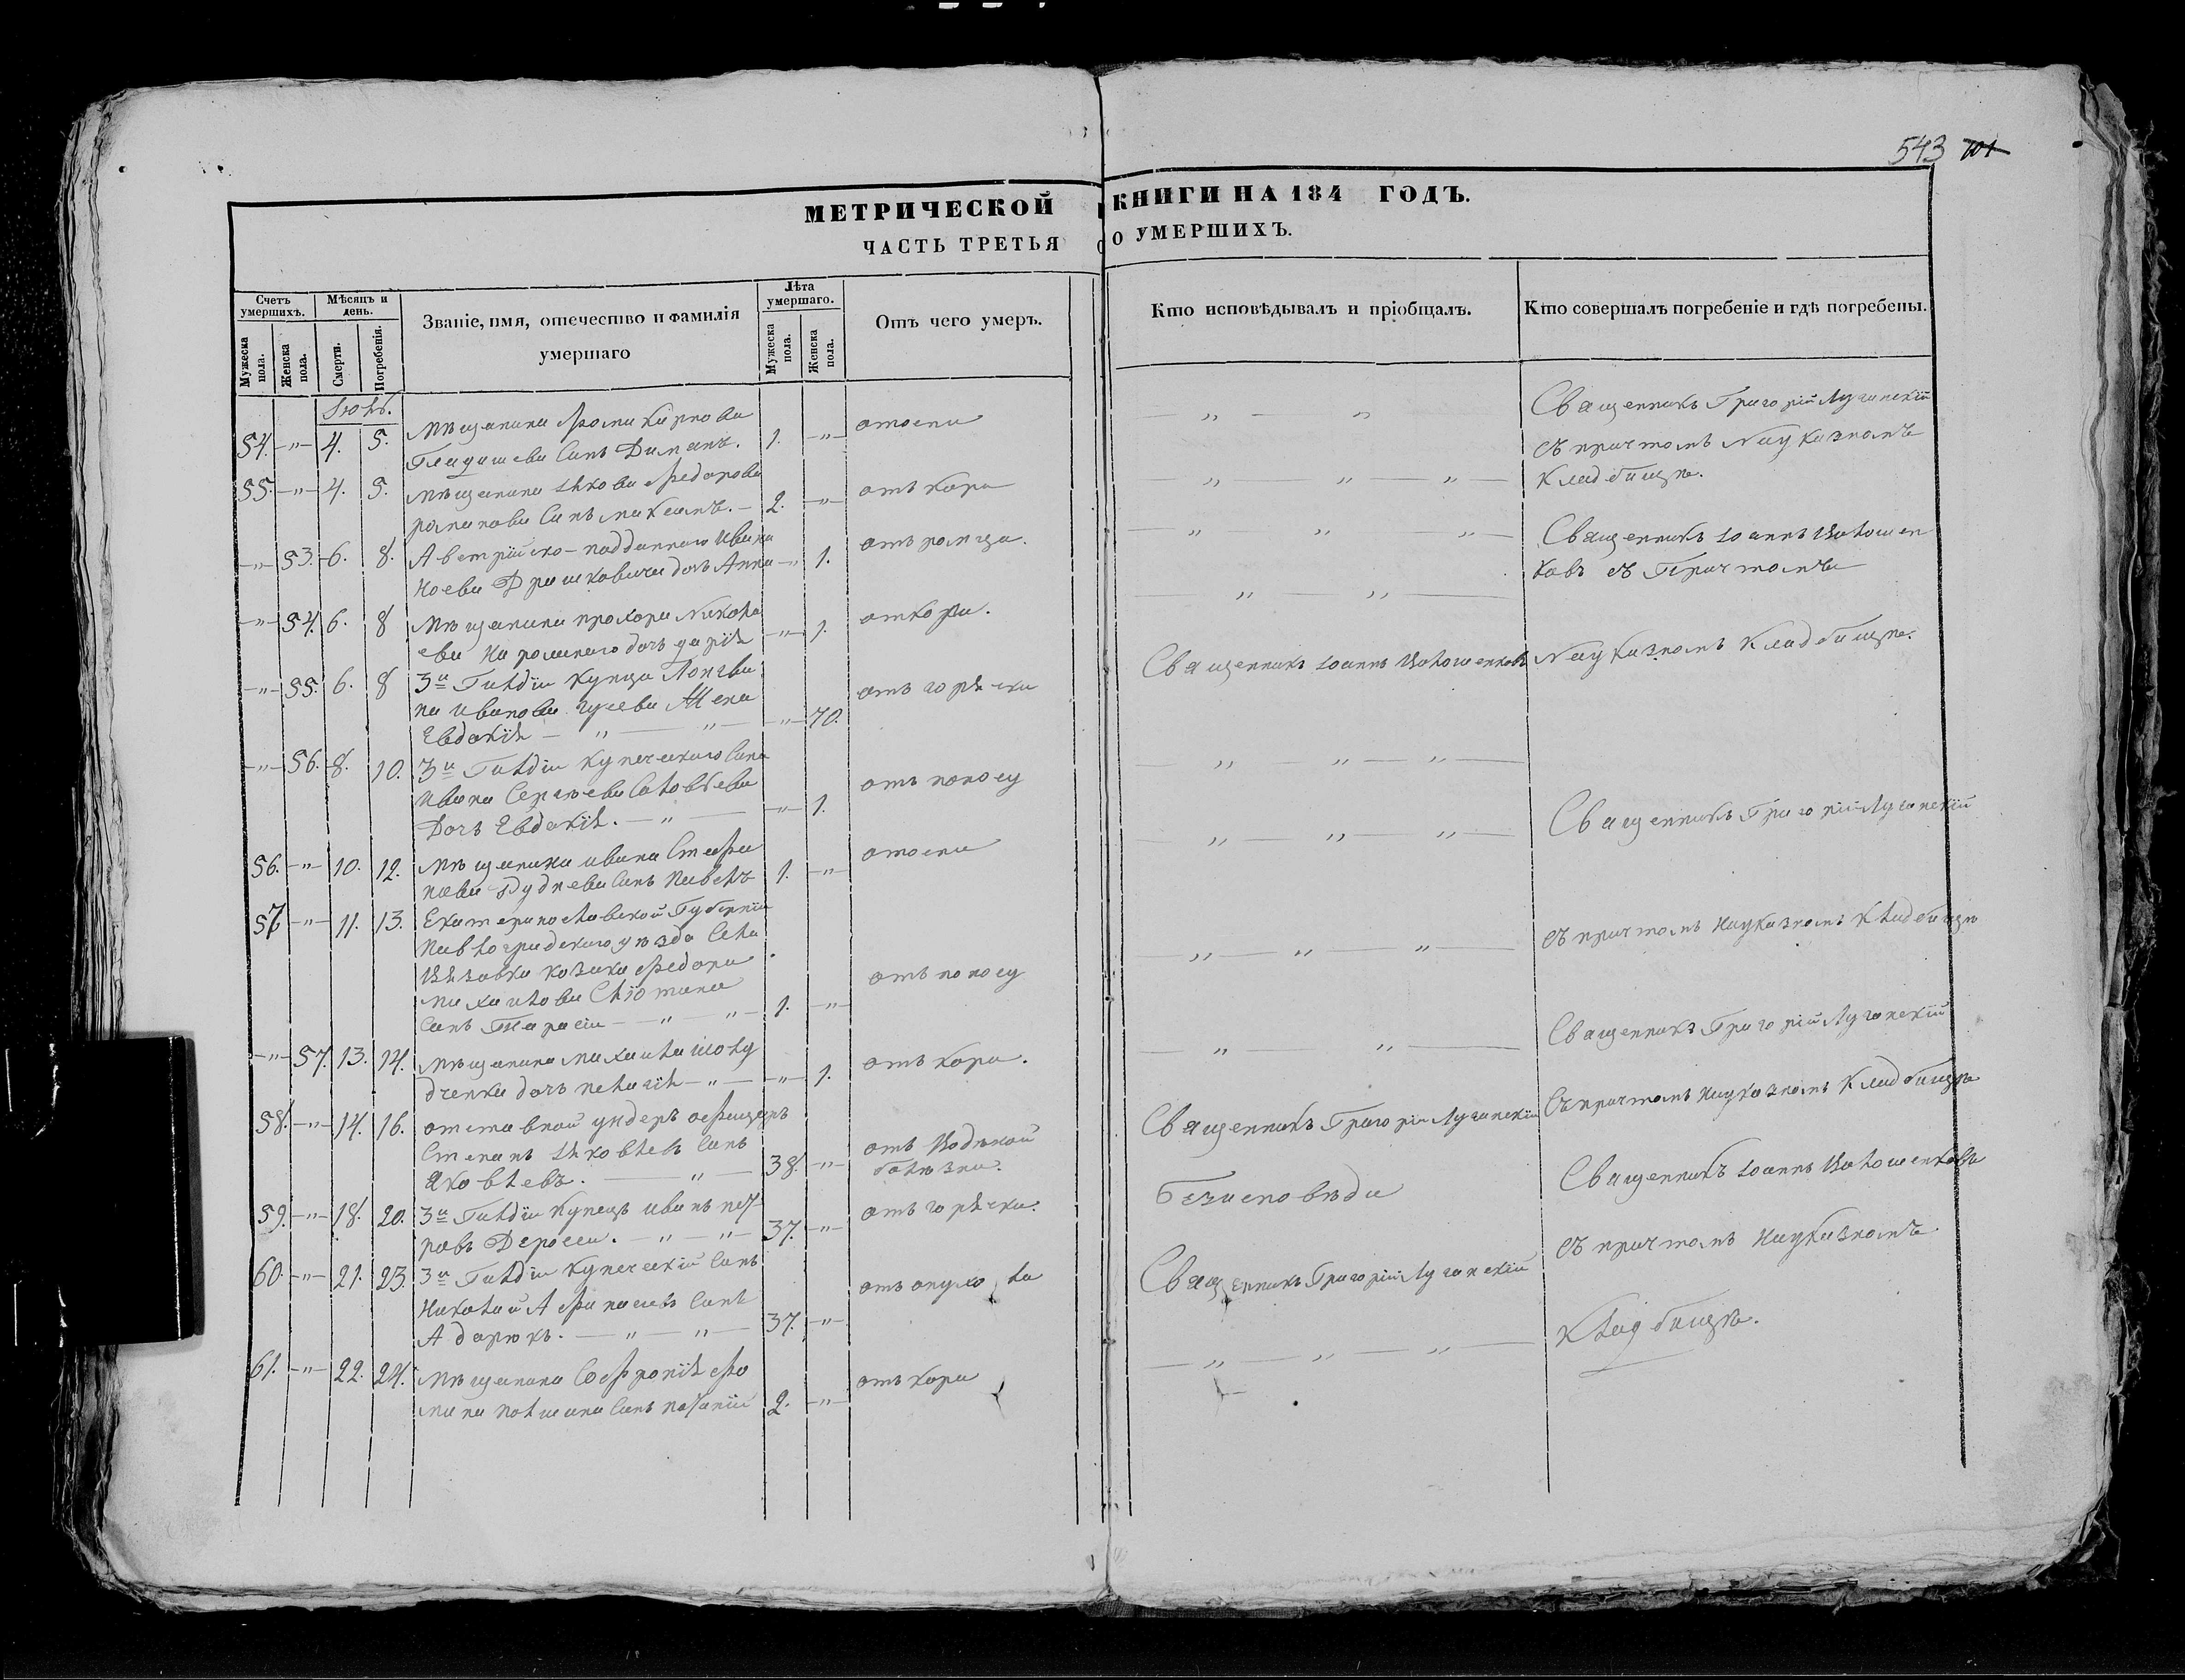 543 701
МЕТРИЧЕСКОЙ КНИГИ НА 184 ГОДЪ.
ЧАСТЬ ТРЕТЬЯ О УМЕРШИХЪ.
Счетъ умершихъ.
Мужеска пола.
Женска пола.
Мѣсяцъ и день.
Смерти.
Погребенія.
Званіе, имя, отечество и фамилія
умершаго
Лѣта умершаго.
Мужеска пола.
Женска пола.
Отъ чего умеръ.
Кто исповѣдывалъ и пріобщалъ.
Кто совершалъ погребеніе и гдѣ погребены.
54. -"- 4. 5. Мѣщанина Фомы Карпова
сынъ 1. -"- отоспы
Священникъ Григорій Луганскій
съ причтомъ Науказномъ
Кладбищѣ.
55. -"- 4. 5. Мѣщанина Якова Федорова
романова сынъ 2. -"- отъ кори
-"- 53. 6. 8. Австрійско-подданнаго Ивана
дочь Анна -"- 1. отъ
Священникъ Іоаннъ
съ Причтомъ
-"- 54. 6. 8 Мѣщанина прохора Никола
ева дочь дарія -"- 1. откори.
-"- 55. 6. 8 3й Гилдіи Купца Лонгви
на иванова гусева Жена
Евдокія - " - " - -"- 70. отъ горячки
Священникъ Іоаннъ
Науказномъ Кладбищѣ.
-"- 56. 8. 10. 3й Гилдіи Купеческаго Сына
Ивана Сергѣева Соловьева
Дочь Евдокія. - " - -"- 1. отъ поносу
56. -"- 10. 12. Мѣщанина ивана Стефа
нова Руднева сынъ Павелъ 1. -"- отоспы
Священникъ Григорій Луганскій
57 -"- 11. 13. Екатеринославской Губерніи
Павлоградскаго уѣзда Села
козака Федора
михайлова
сынъ Тарасій - " - " - 1. -"- отъ поносу
съ причтомъ Науказномъ Кладбищѣ
-"- 57. 13. 14. Мѣщанина Михаила
дченка дочь пелагія - " - -"- 1. отъ кори.
Священникъ Григорій Луганскій
58. -"- 14. 16. отставной ундеръ офицеръ
Степанъ Яковлевъ сынъ
Яковлевъ. - " - 38. -"- отъ Водяной
болѣзни.
Священникъ Григорій Луганскій
Съ причтомъ Науказномъ Кладбищѣ
59. -"- 18. 20. 3й Гилдіи Купецъ иванъ пет
ровъ - " - " - 37. -"- отъ горячки.
Безисповѣди
Священникъ Іоаннъ
60. -"- 21. 23. 3й Гилдіи Купеческій Сынъ
Николай Афанасьевъ Сынъ
- " - " - 37. -"- отъ опухола
Священникъ Григорій Луганскій
съ причтомъ Науказномъ
Кладбищѣ.
61. -"- 22. 24. Мѣщанина Софронія Фо
мина сынъ 2. -"- отъ кори